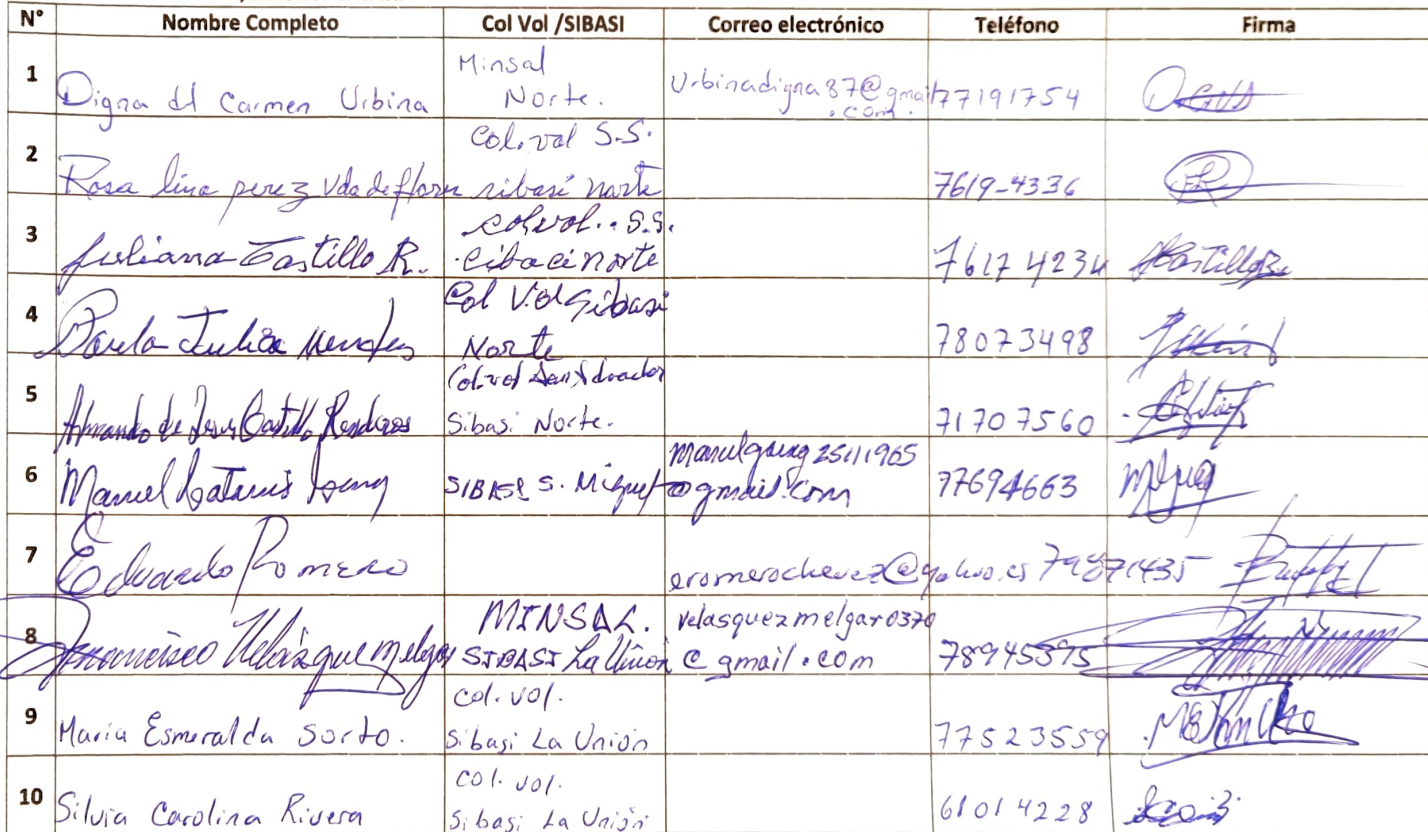 N° Nombre Completo Col Vol /SIBASI Correo electrónico Teléfono Firma
1 Digna del Carmen Urbina Minsal Norte. Urbinadigna87@gmail.com. 77191754
2 Rosa lina perez Vda de flores Col. vol S.S. sibasi norte 7619-4336
3 Juliana Castillo R. colvol.. S.S. cibaci norte 7617 4234
4 Paula Julia Mendes Col Vol Sibasi Norte 78073498
5 Armando de Jesus Castillo Renderos Col. vol San Salvador Sibasi Norte. 71707560
6 Manuel SIBASI S. Miguel @gmail.com 77694663
7 Eduardo Romero eromerochevez@yahoo.es 79871435
8 Francisco Velásquez Melgar MINSAL. SIBASI La Unión velasquezmelgar0370 @gmail.com 78945595
9 Maria Esmeralda Sorto. Col. vol. Sibasi La Unión 77523559
10 Silvia Carolina Rivera Col. vol. Sibasi La Unión 61014228